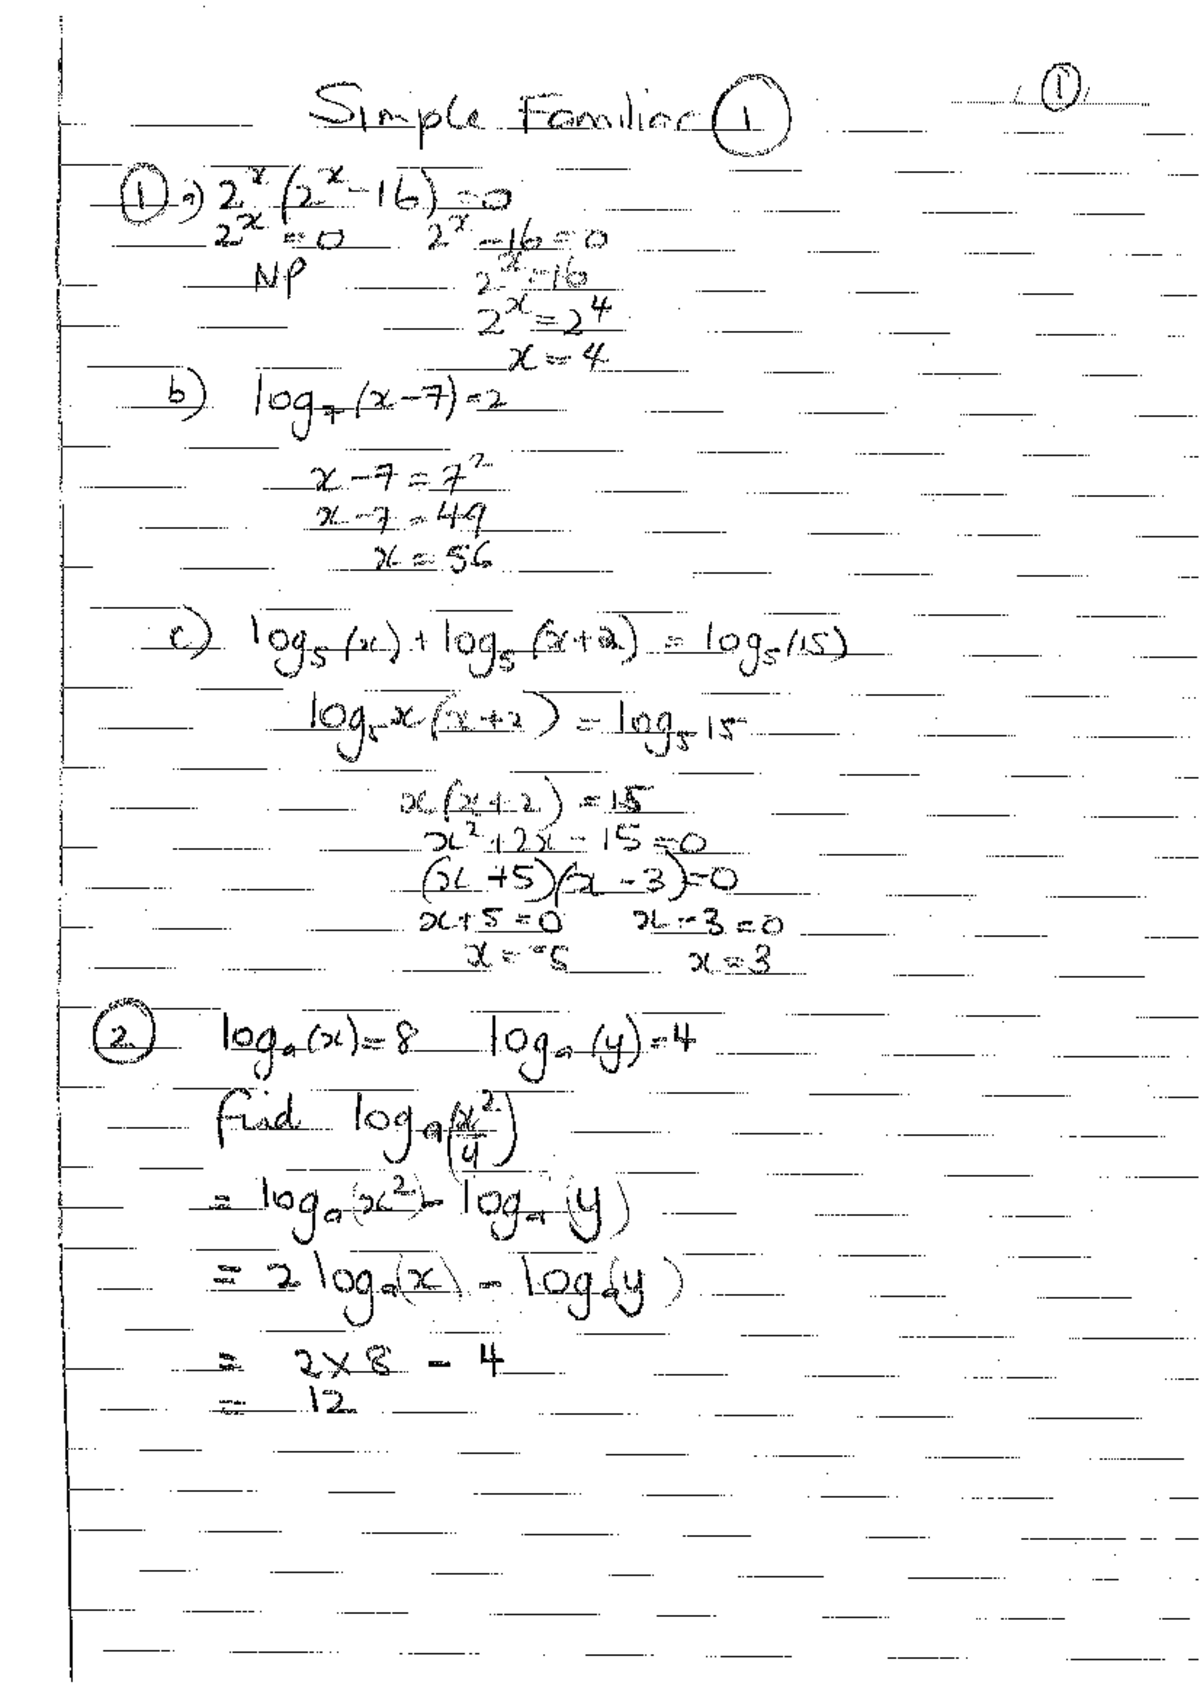 ①
Simple Familiar ①
① a) 2^x (2^x - 16) = 0
2^x = 0    2^x - 16 = 0
NP    2^x = 16
2^x = 2^4
x = 4
b) log₇(x-7) = 2
x - 7 = 7²
x - 7 = 49
x = 56
c) log₅(x) + log₅(x+2) = log₅(15)
log₅x(x+2) = log₅15
x(x+2) = 15
x² + 2x - 15 = 0
(x + 5)(x - 3) = 0
x + 5 = 0    x - 3 = 0
x = -5    x = 3
② logₐ(x) = 8    logₐ(y) = 4
find logₐ(x²/y)
= logₐ(x²) - logₐ(y)
= 2 logₐ(x) - logₐ(y)
= 2×8 - 4
= 12